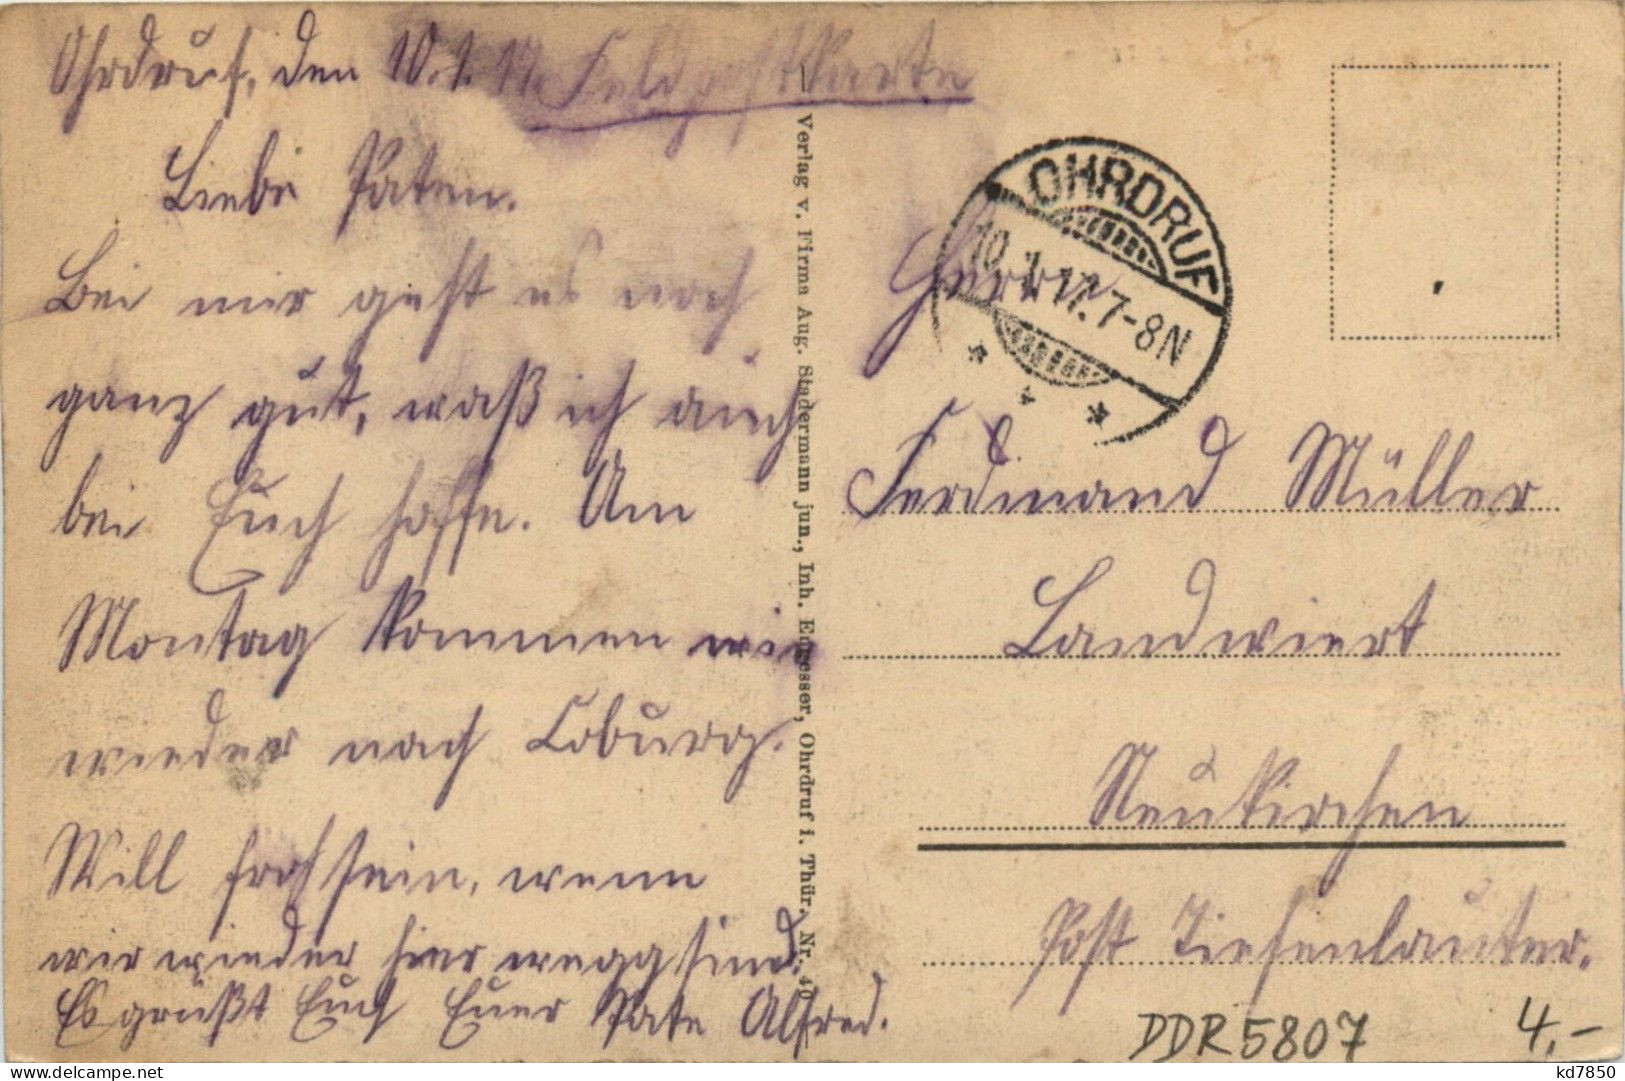 Ohrdruf, den 10.1.17. Feldpostkarte
Liebe Paten.
Bei mir geht es noch
ganz gut, waß ich auch
bei Euch hoffe. Am
Montag kommen wir
wieder nach Coburg.
Will froh sein, wenn
wir wieder hier wegg sind.
Es grüßt Euch Euer Pate Alfred.
Verlag v. Firma Aug. Stadermann jun., Inh. Ohrdruf i. Thür. Nr. 40
OHRDRUF
10.1.17. 7-8N
* * *
Herrn
Ferdinand Müller
Landwiert
Neukirchen
Post Tiefenlauter.
DDR 5807
4,-
kd7850